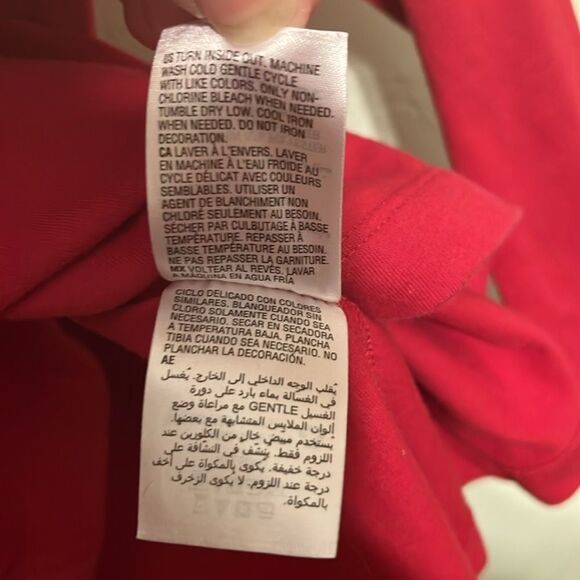 US TURN INSIDE OUT. MACHINE
WASH COLD GENTLE CYCLE
WITH LIKE COLORS. ONLY NON-
CHLORINE BLEACH WHEN NEEDED.
TUMBLE DRY LOW. COOL IRON
WHEN NEEDED. DO NOT IRON
DECORATION.
CA LAVER À L'ENVERS. LAVER
EN MACHINE À L'EAU FROIDE AU
CYCLE DÉLICAT AVEC COULEURS
SEMBLABLES. UTILISER UN
AGENT DE BLANCHIMENT NON
CHLORÉ SEULEMENT AU BESOIN.
SÉCHER PAR CULBUTAGE À BASSE
TEMPÉRATURE. REPASSER À
BASSE TEMPÉRATURE AU BESOIN.
NE PAS REPASSER LA GARNITURE.
MX VOLTEAR AL REVÉS. LAVAR
A MÁQUINA EN AGUA FRÍA
CICLO DELICADO CON COLORES
SIMILARES. BLANQUEADOR SIN
CLORO SOLAMENTE CUANDO SEA
NECESARIO. SECAR EN SECADORA
A TEMPERATURA BAJA. PLANCHA
TIBIA CUANDO SEA NECESARIO. NO
PLANCHAR LA DECORACIÓN.
AE
يُقلب الوجه الداخلي إلى الخارج. يُغسل
في الغسالة بماء بارد على دورة
الغسيل GENTLE مع مراعاة وضع
ألوان الملابس المتشابهة مع بعضها.
يُستخدم مبيض خال من الكلورين عند
اللزوم فقط. ينشّف في النشافة على
درجة خفيفة. يكوى بالمكواة على أخف
درجة عند اللزوم. لا يكوى الزخرف
بالمكواة.